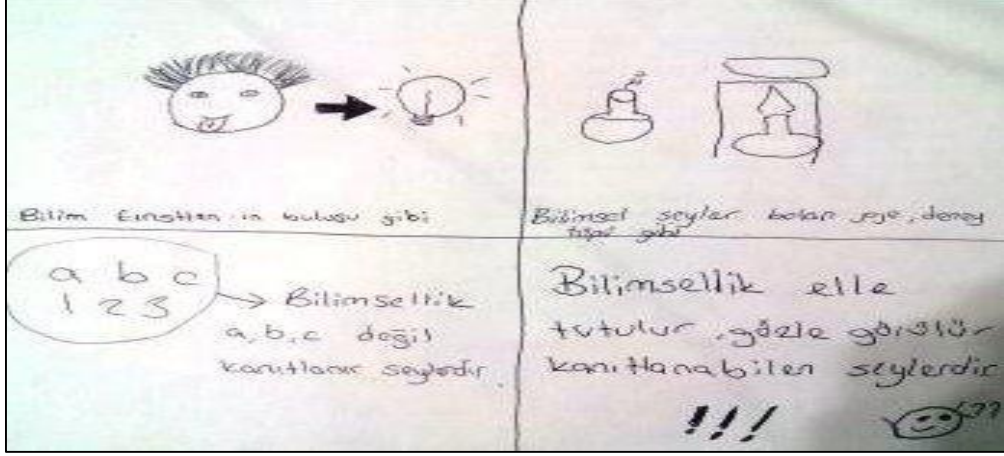 Bilim Einstien in buluşu gibi
Bilimsel şeyler balon joje, deney
tüpü gibi
a b c
1 2 3
Bilimsellik
a, b, c değil
kanıtlanır şeylerdir.
Bilimsellik elle
tutulur, gözle görülür
kanıtlanabilen şeylerdir
!!!
??